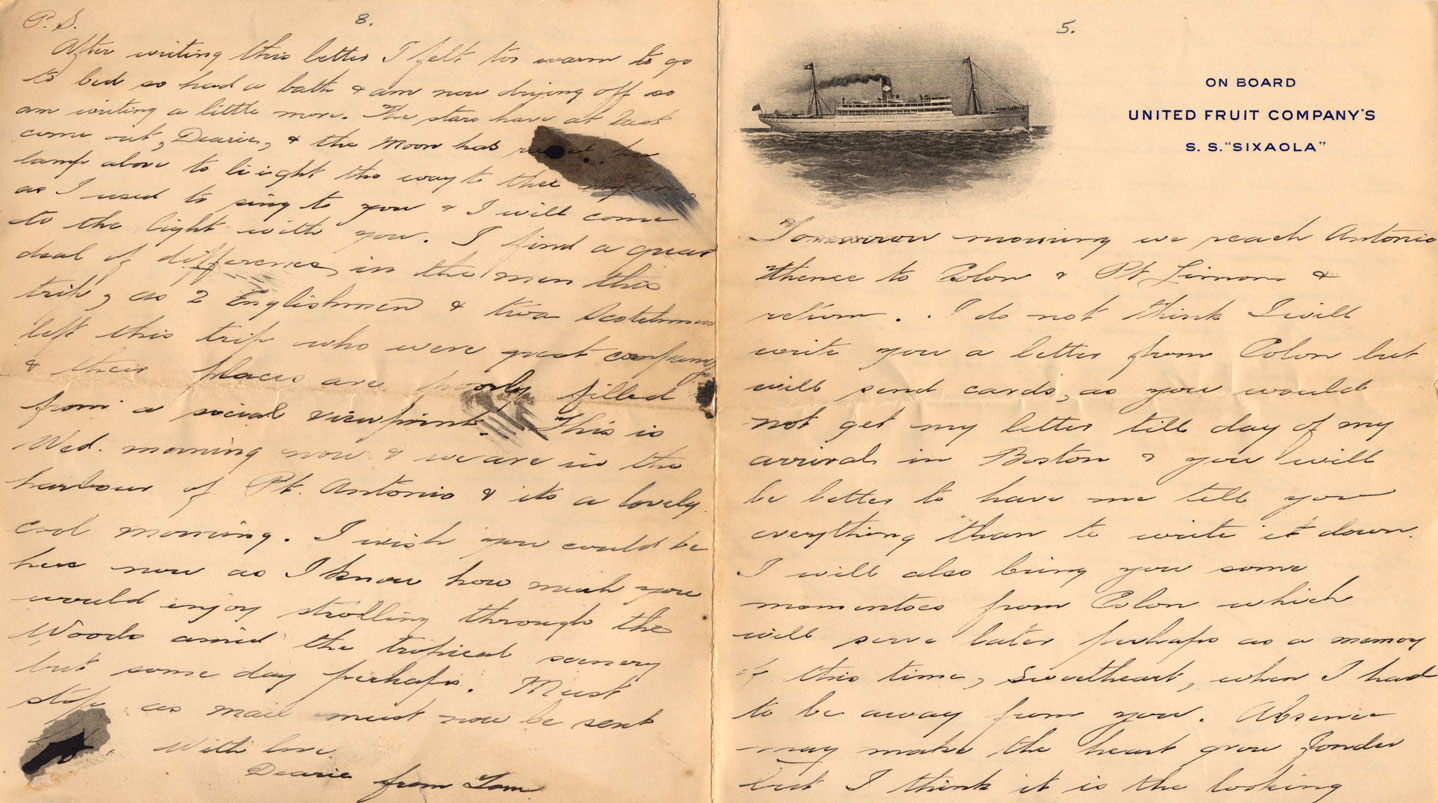 P. S.
8.
After writing this letter I felt too warm to go
to bed so had a bath & am now drying off so
am writing a little more. The stars have at last
come out, Dearie, & the Moon has the
lamp above to liight the way to thee
as I used to sing to you & I will come
to the light with you. I find a great
deal of difference in the men this
trip, as 2 Englishmen & two Scotchmen
left this trip who were great company
& their places are poorly filled
from a social viewpoint. This is
Wed. morning now & we are in the
harbour of Pt. Antonio & its a lovely
cool morning. I wish you could be
here now as I know how much you
would enjoy strolling through the
Woods amid the tropical scenery
but some day perhaps. Must
stop as mail must now be sent
With love
Dearie from Tom
5.
ON BOARD
UNITED FRUIT COMPANY'S
S. S. "SIXAOLA"
Tomorrow morning we reach Antonio
thence to Colon & Pt Limon &
return. . I do not think I will
write you a letter from Colon but
will send cards, as you would
not get my letter till day of my
arrival in Boston & you will
be better to have me tell you
everything than to write it down.
I will also bring you some
momentoes from Colon which
will serve later perhaps as a memory
of this time, Sweetheart, when I had
to be away from you. Absence
may make the heart grow fonder
but I think it is the looking